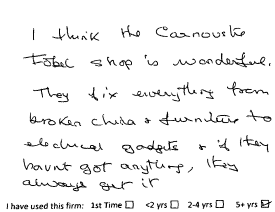 I think the Carnoustie
Total shop is wonderful.
They fix everything from
broken china & furniture to
electrical gadgets & if they
havnt got anything, they
always get it
I have used this firm: 1st Time ☐ <2 yrs ☐ 2-4 yrs ☐ 5+ yrs ☑